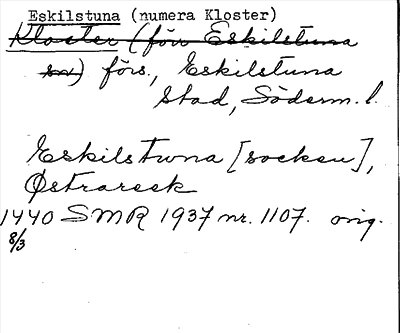 Eskilstuna (numera Kloster)
Kloster (förr Eskilstuna
sn) förs., Eskilstuna
stad, Söderm. l.
Eskilstwna [socken],
Østrareek
1440 SMR 1937 nr. 1107. orig.
8/3